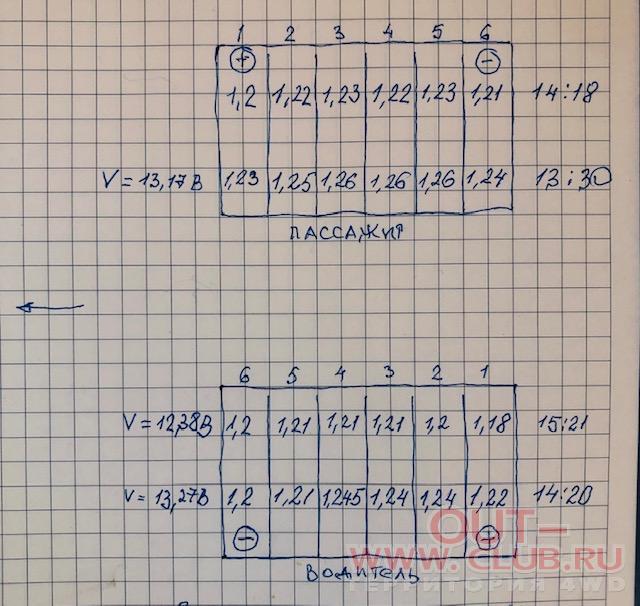 1 2 3 4 5 6
+ -
1,2 1,22 1,23 1,22 1,23 1,21 14:18
V = 13,17В 1,23 1,25 1,26 1,26 1,26 1,24 13:30
ПАССАЖИР
6 5 4 3 2 1
V = 12,38В 1,2 1,21 1,21 1,21 1,2 1,18 15:21
V = 13,27В 1,2 1,21 1,245 1,24 1,24 1,22 14:20
- +
ВОДИТЕЛЬ
OUT-
WWW.CLUB.RU
ТЕРРИТОРИЯ 4WD